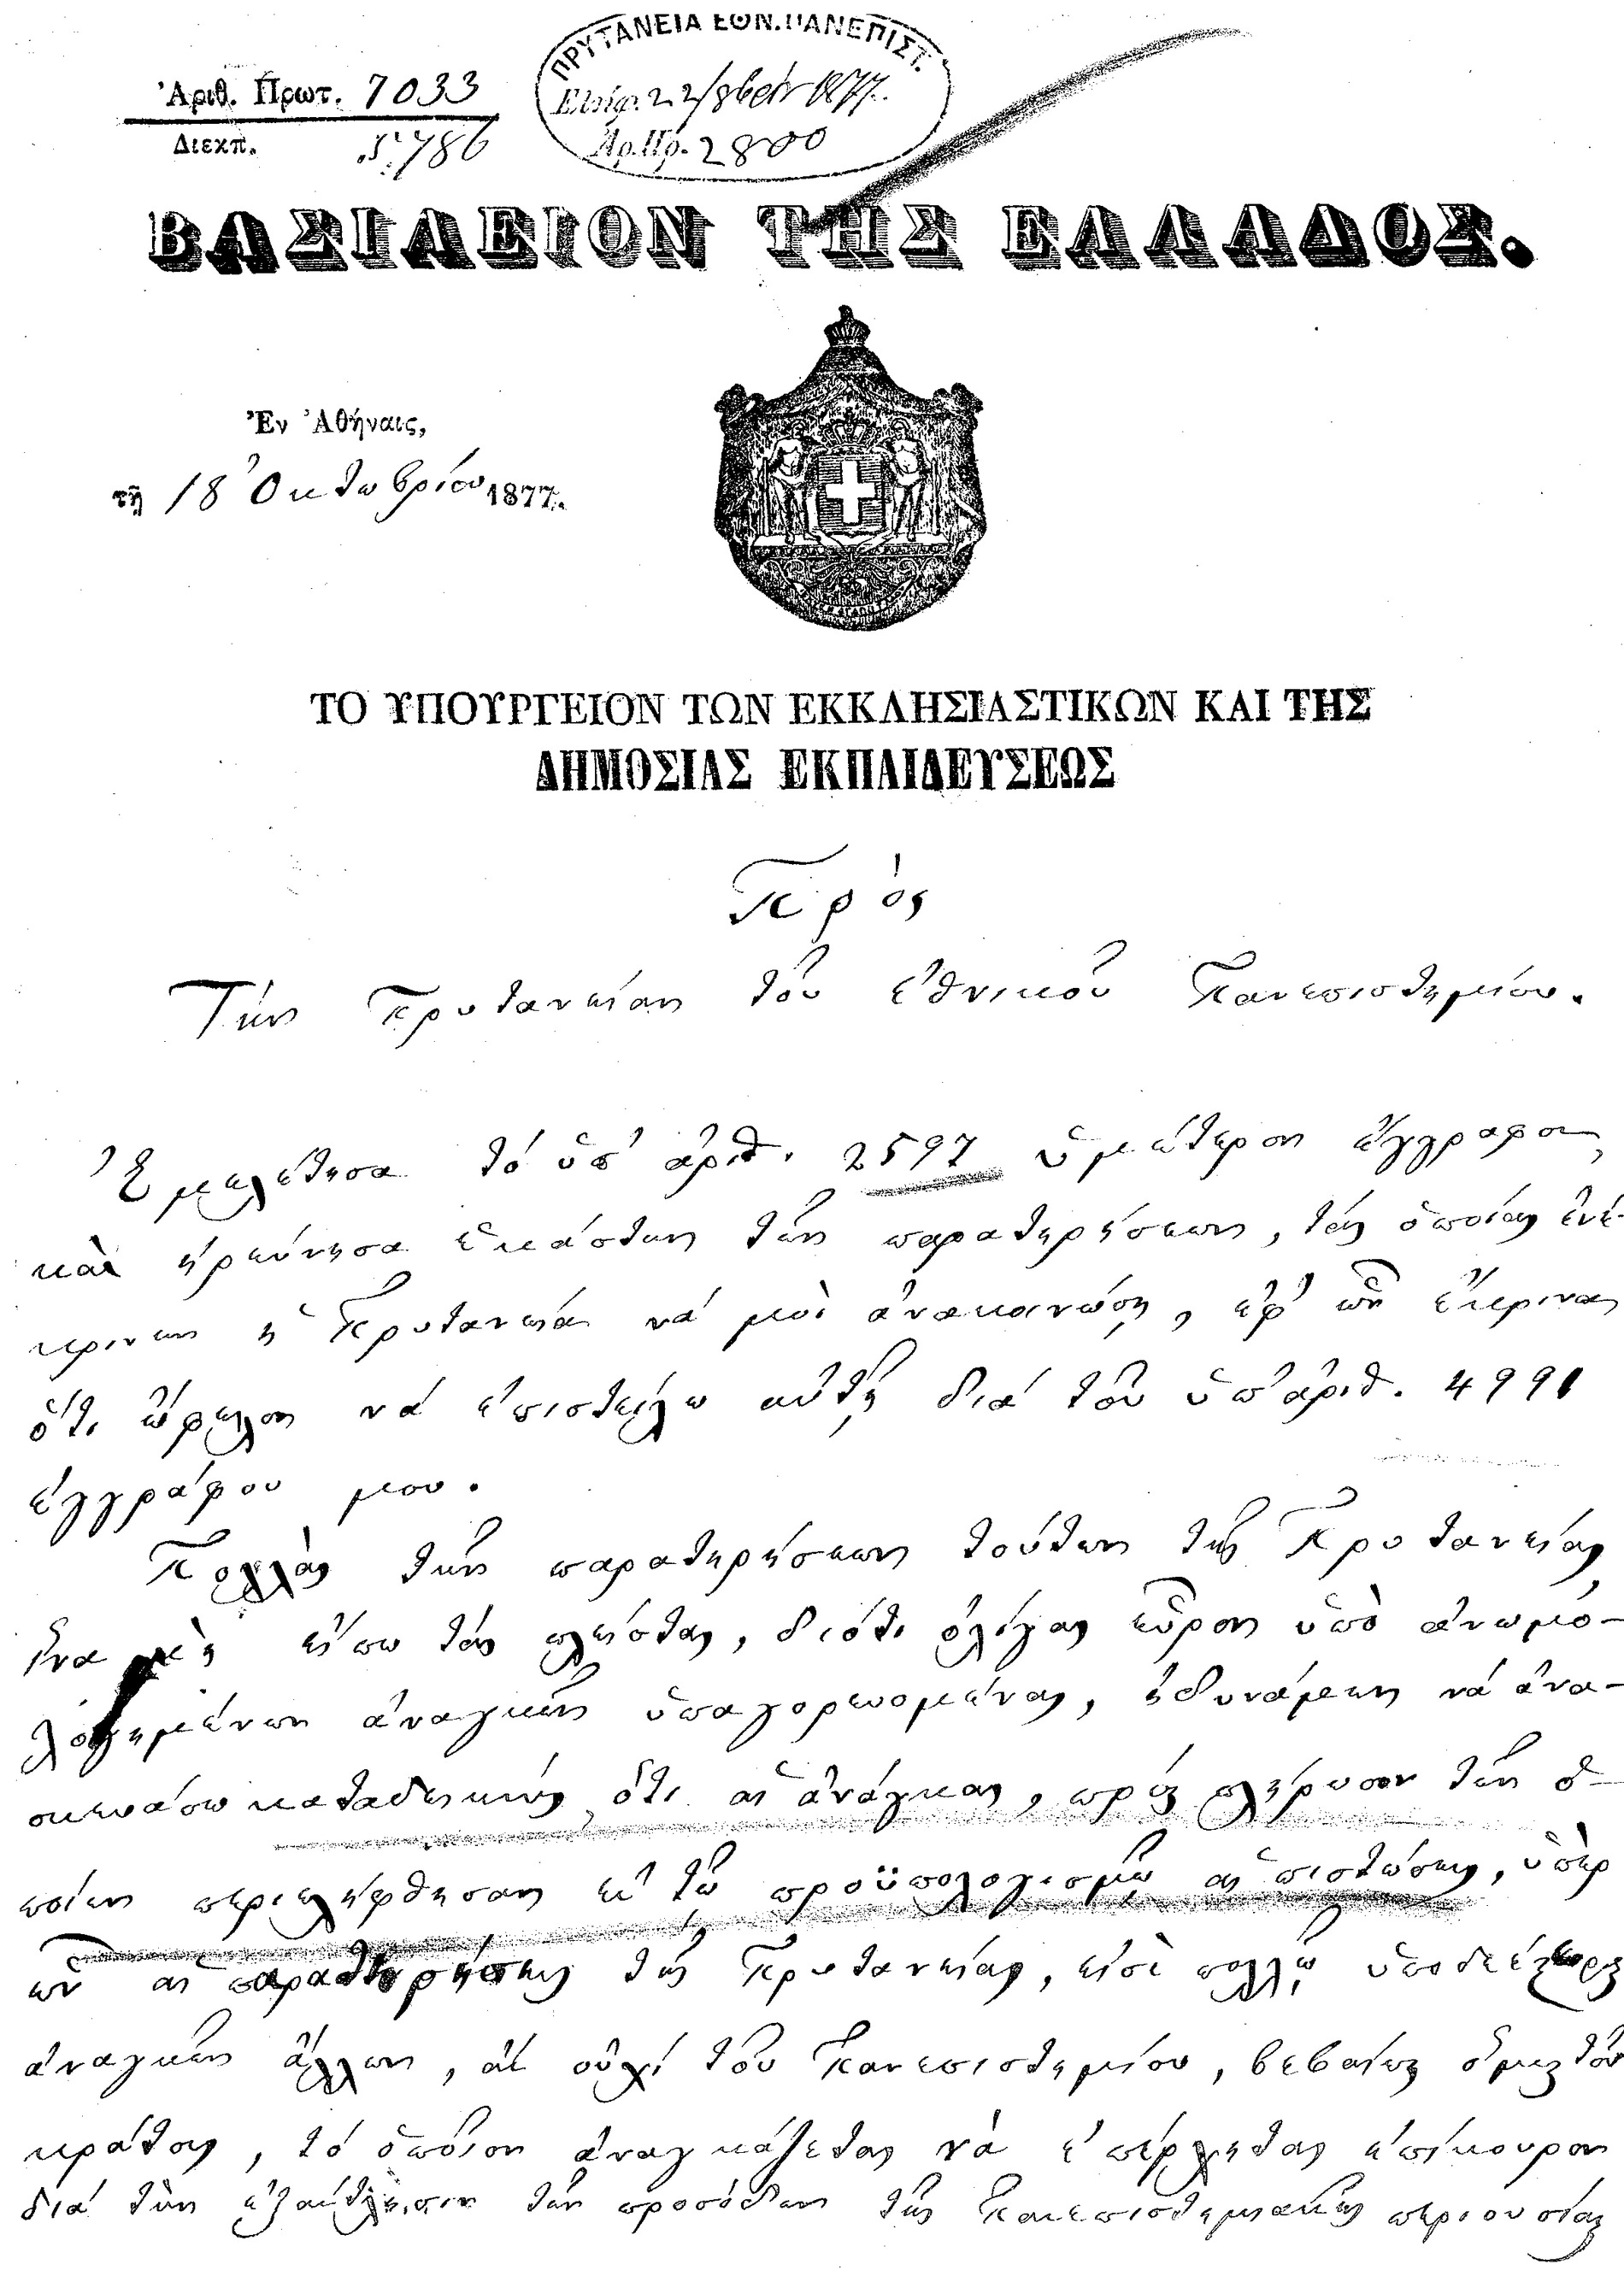 Ἀριθ. Πρωτ. 7033
Διεκπ. 5,786
ΠΡΥΤΑΝΕΙΑ ΕΘΝ. ΠΑΝΕΠΙΣΤ.
22/8βρ 1877.
Ἀρ. Πρ. 2800
ΒΑΣΙΛΕΙΟΝ ΤΗΣ ΕΛΛΑΔΟΣ.
Ἐν Ἀθήναις,
τῇ 18 Ὀκτωβρίου 1877.
ΤΟ ΥΠΟΥΡΓΕΙΟΝ ΤΩΝ ΕΚΚΛΗΣΙΑΣΤΙΚΩΝ ΚΑΙ ΤΗΣ
ΔΗΜΟΣΙΑΣ ΕΚΠΑΙΔΕΥΣΕΩΣ
Πρὸς
Τὴν Πρυτανείαν τοῦ ἐθνικοῦ Πανεπιστημίου.
Ἐμελέτησα τὸ ὑπ' ἀριθ. 2597 ὑμέτερον ἔγγραφον,
καὶ ἠρεύνησα ἑκάστην τῶν παρατηρήσεων, τὰς ὁποίας ἐνέ-
κρινεν ἡ Πρυτανεία νά μοι ἀνακοινώσῃ, ἐφ' ὧν ἔκρινα
ὅτι ὤφειλον νὰ ἐπιστείλω αὐτῇ διὰ τοῦ ὑπ' ἀριθ. 4991
ἐγγράφου μου.
Πολλὰς τῶν παρατηρήσεων τούτων τῆς Πρυτανείας,
ἵνα μὴ εἴπω τὰς πλείστας, διότι ὀλίγας εὗρον ὑπὸ ἀνωμο-
λογημένων ἀναγκῶν ὑπαγορευομένας, ἠδυνάμην νὰ ἀνα-
σκευάσω καταδεικνύς, ὅτι αἱ ἀνάγκαι, πρὸς πλήρωσιν τῶν ὁ-
ποίων περιελήφθησαν ἐν τῷ προϋπολογισμῷ αἱ πιστώσεις, ὑπὲρ
ὧν αἱ παρατηρήσεις τῆς Πρυτανείας, εἰσὶ πολλῷ ὑποδεέστεραι
ἀναγκῶν ἄλλων, ἂν οὐχὶ τοῦ Πανεπιστημίου, βεβαίως ὅμως τοῦ
κράτους, τὸ ὁποῖον ἀναγκάζεται νὰ ἐπέρχηται ἐπίκουρον
διὰ τὴν ἐξάντλησιν τῶν προσόδων τῆς Πανεπιστημιακῆς περιουσίας